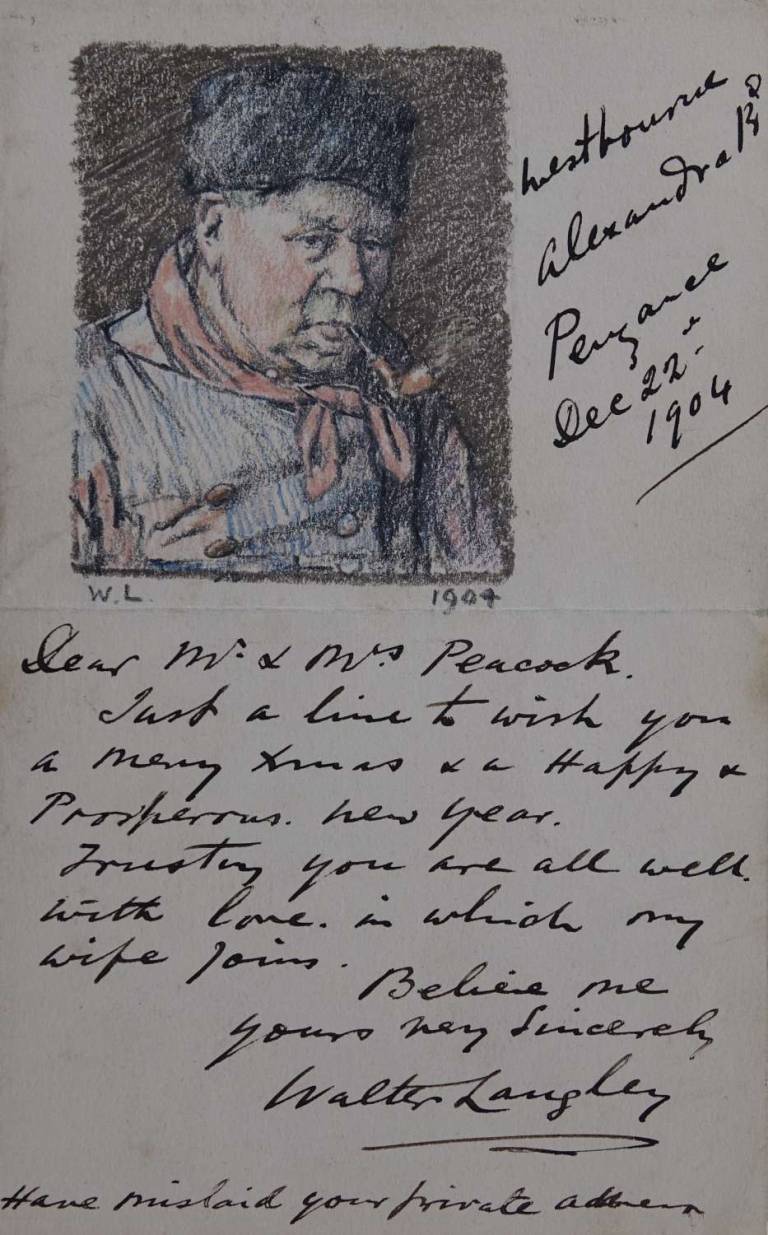 Westbourne
Alexandra Rd
Penzance
Dec 22
1904
W.L. 1904
Dear Mr. & Mrs Peacock.
Just a line to wish you
a Merry Xmas & a Happy &
Prosperous. New Year.
Trusting you are all well.
with love. in which my
wife joins.
Believe me
yours very Sincerely
Walter Langley
Have mislaid your private address